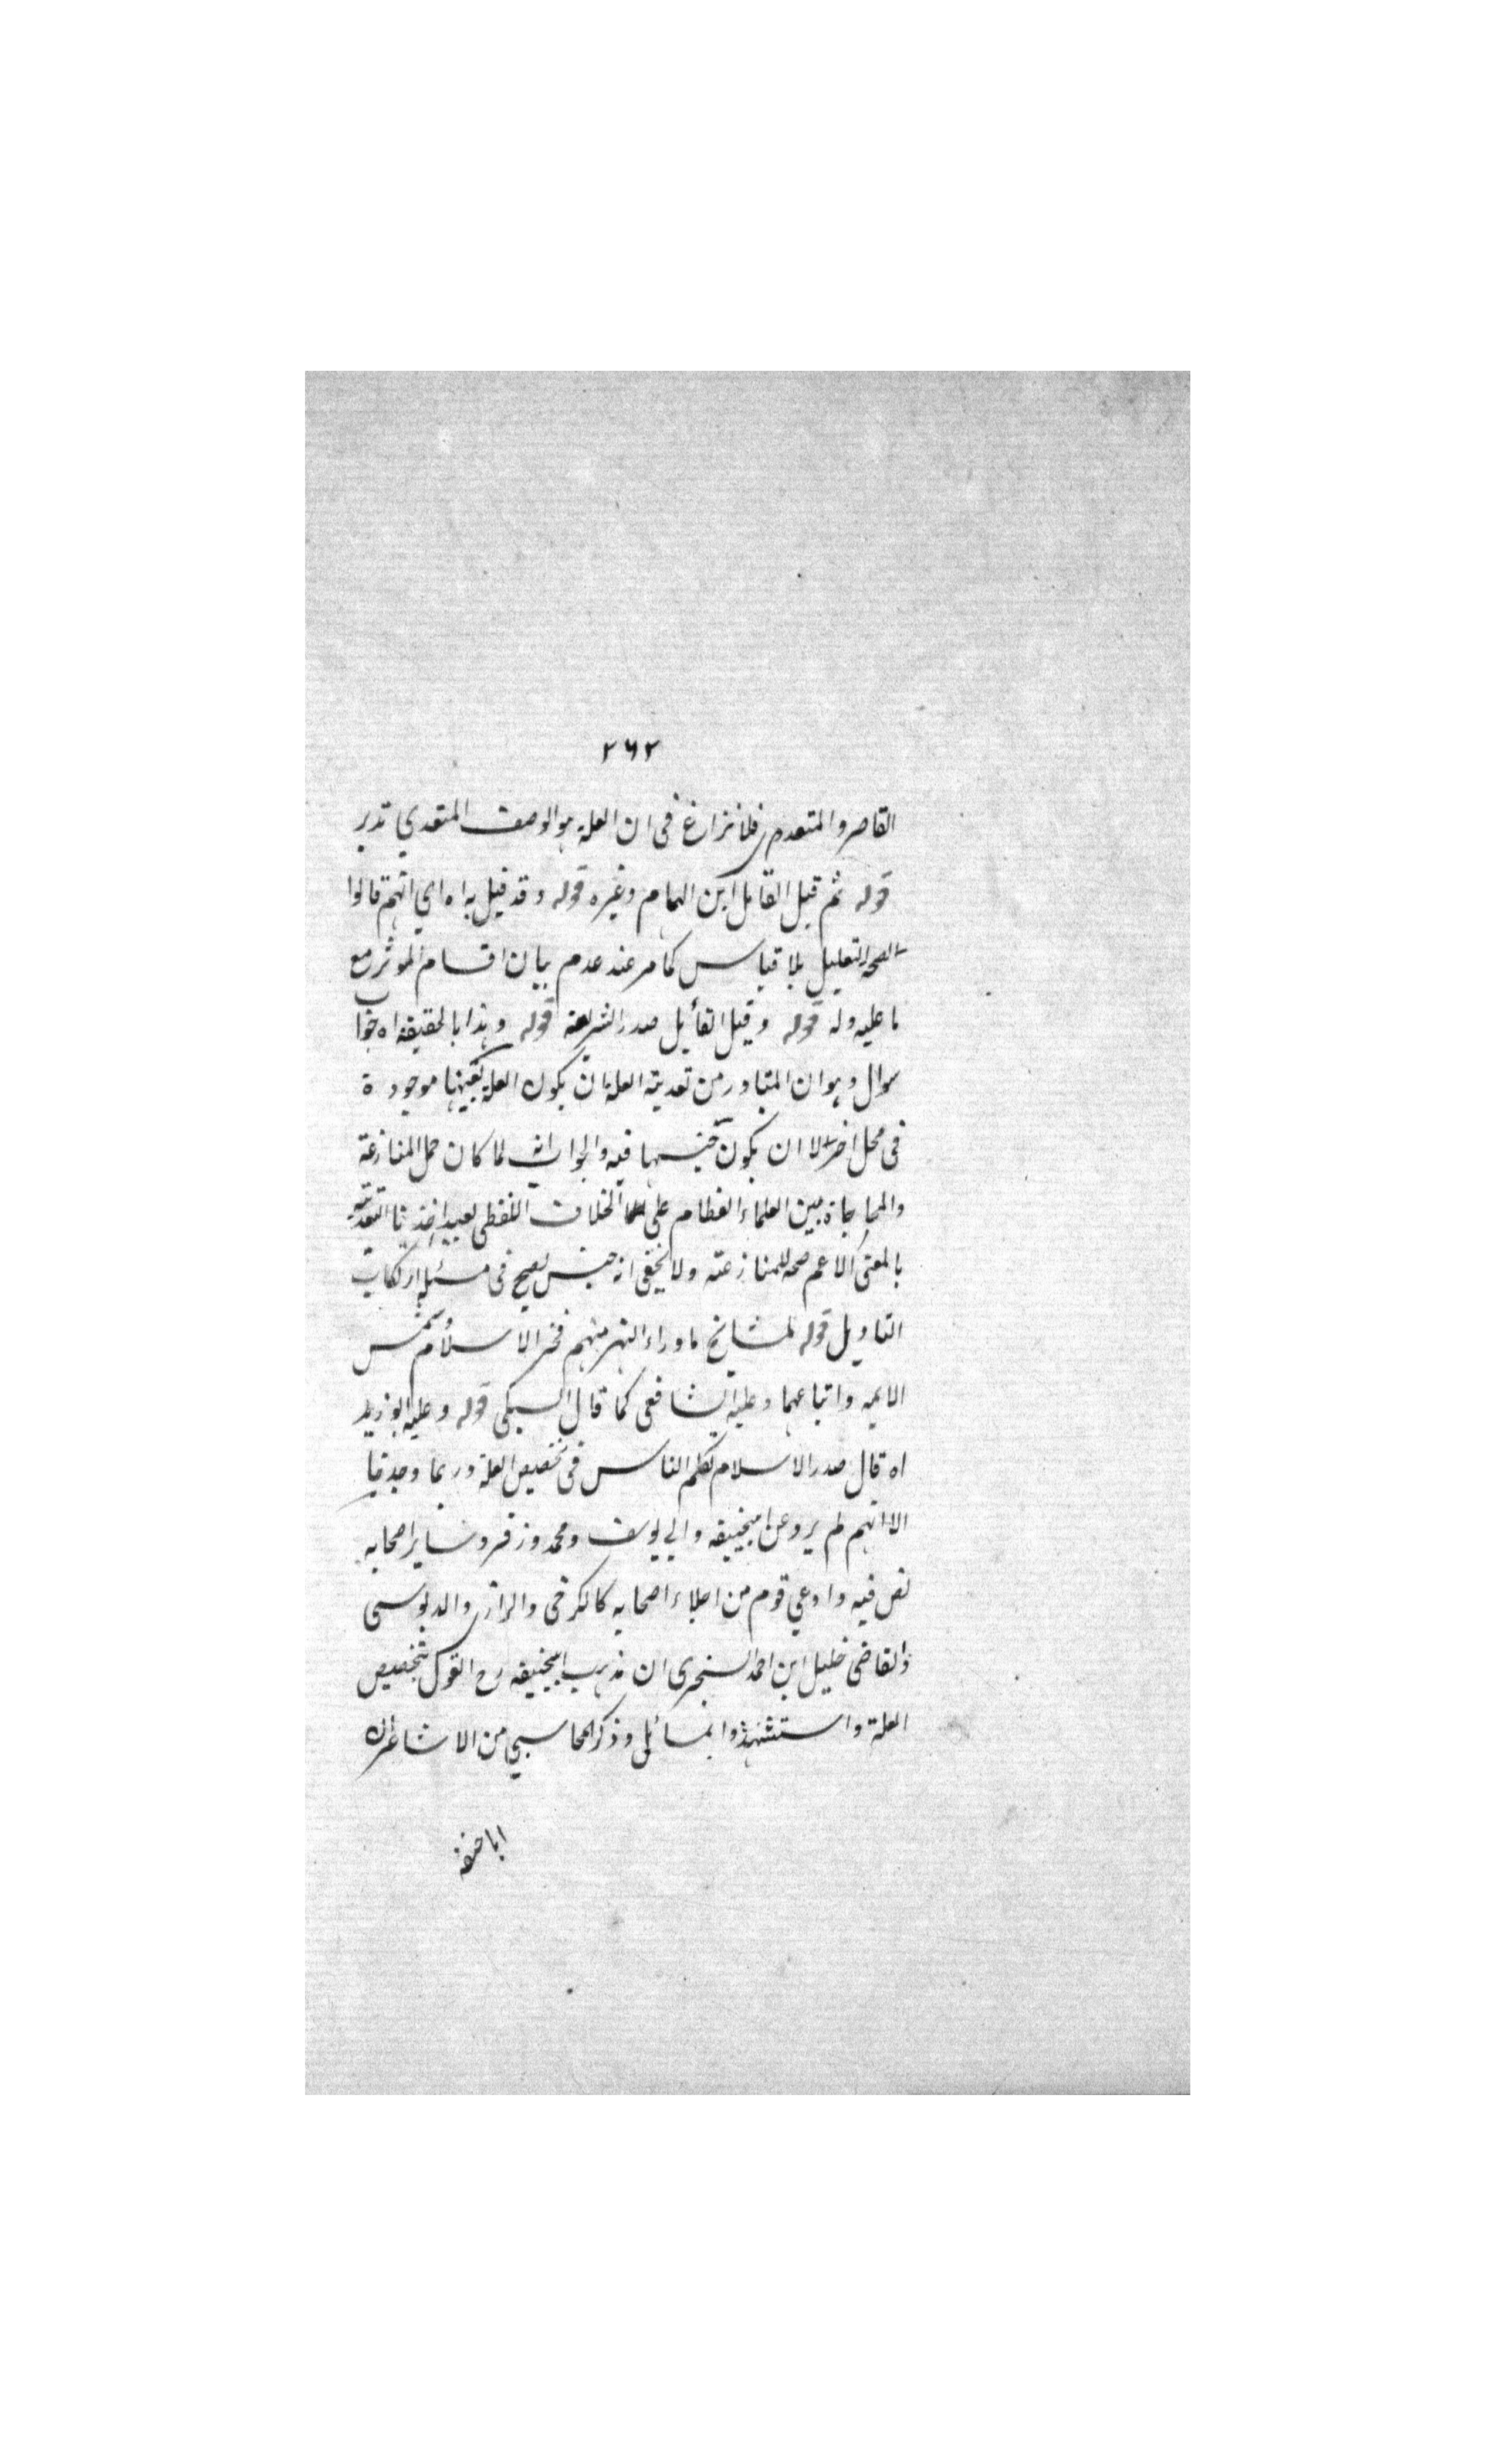 ٢٦٢
القاصر والمتعدى فلا نزاع فى ان العلة هو الوصف المتعدي تدبر
قوله ثم قيل القايل ابن الهمام وغيره قوله وقد قيل به اه اي انهم قالوا
الصحة التعليل بلا قياس كما مر عند عدم بيان اقسام الموثر مع
ما عليه وله قوله وقيل القأيل صدر الشريعة قوله وهذا بالحقيقة اه جواب
سوال وهو ان المتبادر من تعدية العلة ان يكون العلة بعينها موجودة
فى محل اخر لا ان يكون جنسها فيه والجواب انه لما كان حمل المنازعة
والمحاجاة بين العلماء العظام على الخلاف اللفظى بعيدا اخذنا التعدية
بالمعنى الاعم صحة للمنازعته ولا يخفى انه حينئذ يصح فى مسئلة ارتكاب
التاويل قوله لمشايخ ماوراء النهر منهم فخر الاسلام وشمس
الايمه واتباعهما وعليه الشافعى كما قال السبكى قوله وعليه ابو زيد
اه قال صدر الاسلام تكلم الناس فى تخصيص العلة وربما وجد قيا
الا انهم لم يرو عن ابيحنيفه وابي يوسف ومحمد وزفر وساير اصحابه
نص فيه وادعي قوم من اجلاء اصحابه كالكرخى والرازى والدبوسى
والقاضى خليل ابن احمد السنجرى ان مذهب ابيحنيفه رح القول بتخصيص
العلة واستشهدوا بمسائل وذكر المحاسبي من الاشاعرة ان
ابا حنيفة